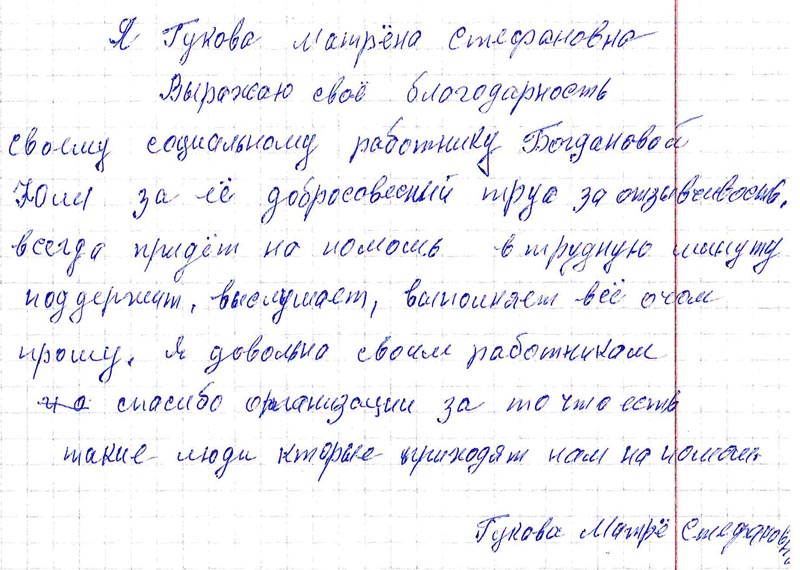 Я Гукова Матрёна Стефановна
Выражаю своё благодарность
своему социальному работнику Богдановой
Юли за её добросовесний труд за отзывчивость,
всегда придёт на помошь в трудную минуту
поддержит, выслушает, выполняет всё очом
прошу. Я довольна своим работникам
спасибо организации за то что есть
такие люди кторые приходят нам на помошь
Гукова Матрё Стефановна